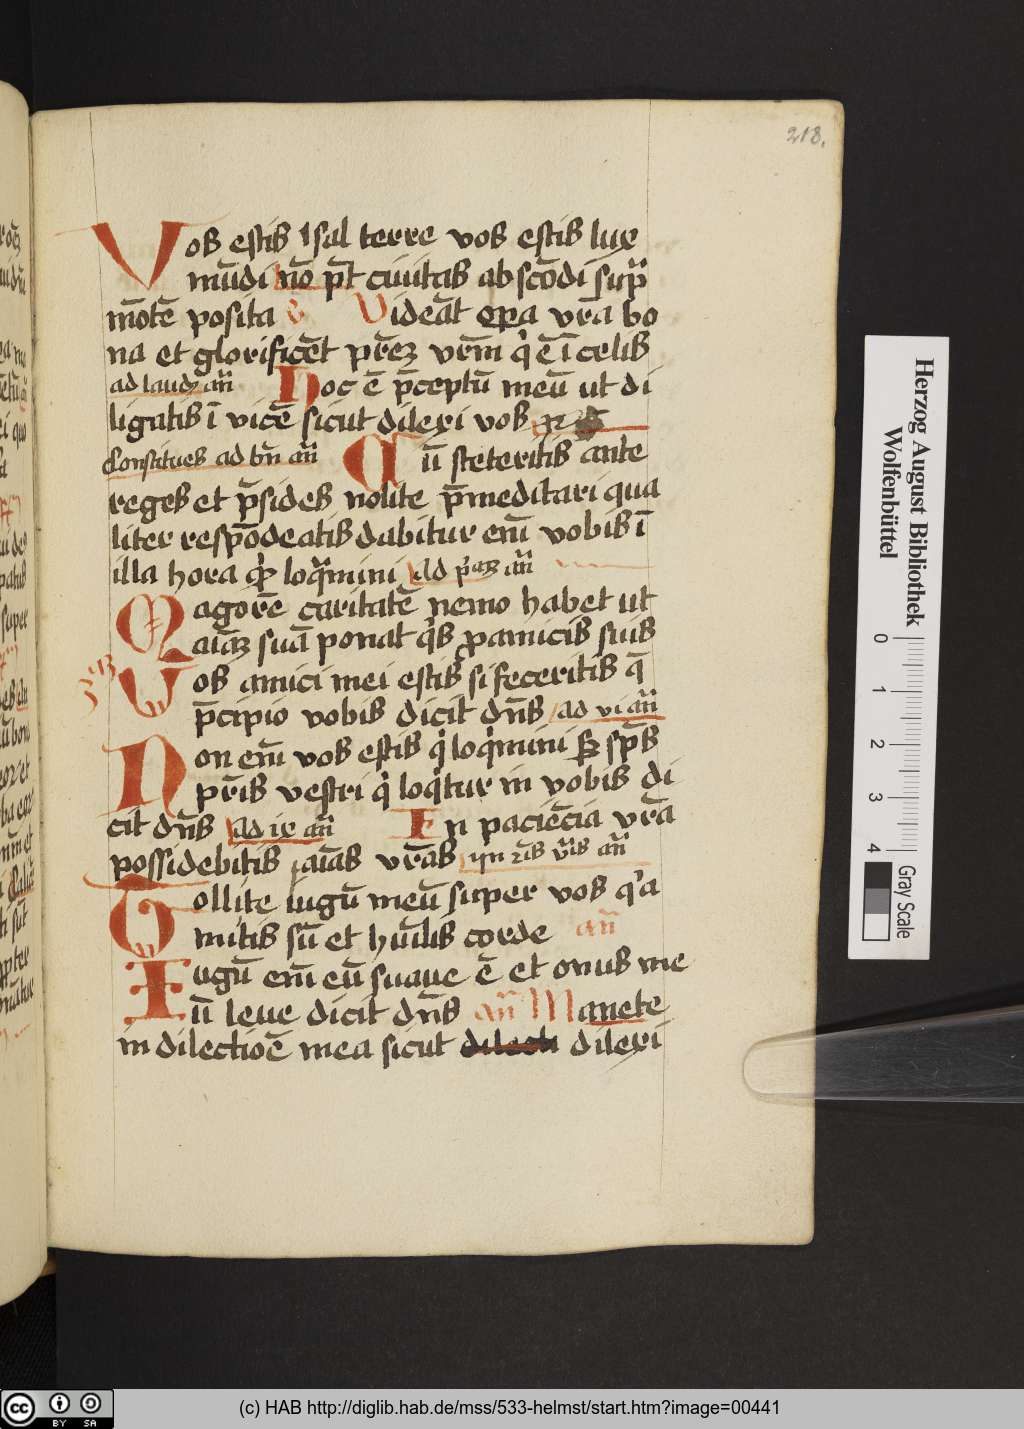 218.
Vos estis sal terre vos estis lux
mūdi nō pt̄ ciuitas abscōdi sup̄
mōtē posita ē Videāt opa vr̄a bo
na et glorificēt pr̄eʒ vrm̄ q̇ ē ī celis
ad laudꝫ an̄ Hoc ē p̄ceptū meū ut di
ligatis ī vicē sicut dilexi vos
Constitues ad bn̄ an̄ Cū steteritis ante
reges et p̄sides nolite p̄meditari qua
liter respōdeatis dabitur em̄ vobis ī
illa hora qͥ loqͣmini ad pͥaꝫ an̄
Magorē caritatē nemo habet ut
aīaꝫ suā ponat qͥs ꝓ amicis suis
Vos amici mei estis si feceritis q̄
p̄cipio vobis dicit dn̄s ad vi an̄
Non em̄ vos estis qͥ loqͥmini sꝫ sp̄s
pr̄is vestri qͥ loqͥtur in vobis di
cit dn̄s ad ix an̄ In paciēcia vr̄a
possidebitis aīas vr̄as
Tollite iugū meū super vos qͥa
mitis sū et hūilis corde an̄
Iugū em̄ eū suaue ē et onus me
ū leue dicit dn̄s an̄ Manete
in dilectiōe mea sicut dilecti dilexi
Herzog August Bibliothek
Wolfenbüttel
0 1 2 3 4
Gray Scale
cc BY SA
(c) HAB http://diglib.hab.de/mss/533-helmst/start.htm?image=00441